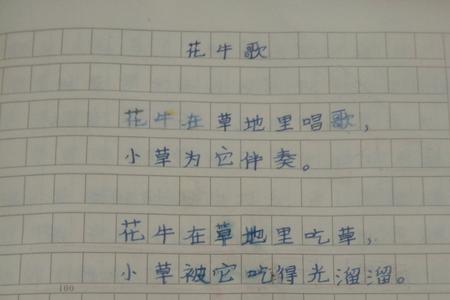 花牛歌
花牛在草地里唱歌，
小草为它伴奏。
花牛在草地里吃草，
小草被它吃得光溜溜。
100